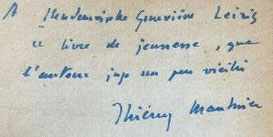 A Mademoiselle Geneviève Leiris
ce livre de jeunesse, que
l'auteur juge un peu vieilli
Thierry Maulnier